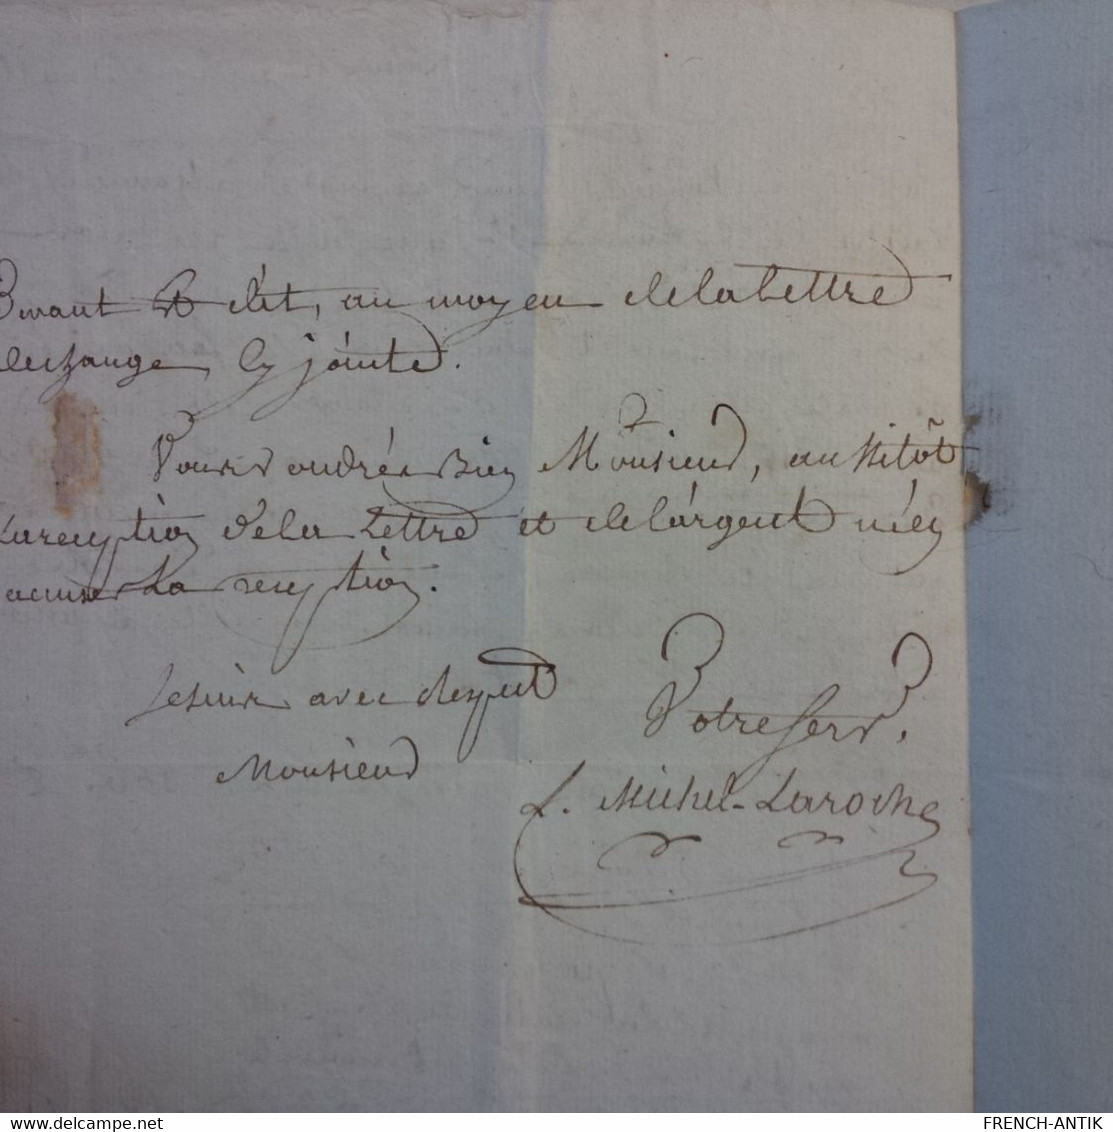 devant & dit, au moyen de la Lettre
dechange Cy jointe.
Vous voudrés Bien Monsieur, aussitôt
La reception de la Lettre et de l'argent m'en
accuser La reception.
Je suis avec respect
Monsieur
Votre Serv.
L. Michel-Laroche
delcampe.net
FRENCH-ANTIK